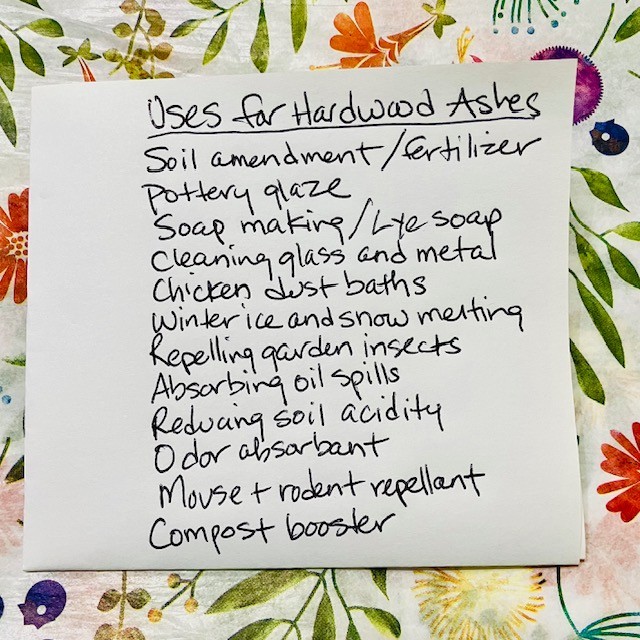 Uses for Hardwood Ashes
Soil amendment/fertilizer
Pottery glaze
Soap making/Lye soap
Cleaning glass and metal
Chicken dust baths
Winter ice and snow melting
Repelling garden insects
Absorbing oil spills
Reducing soil acidity
Odor absorbant
Mouse + rodent repellant
Compost booster